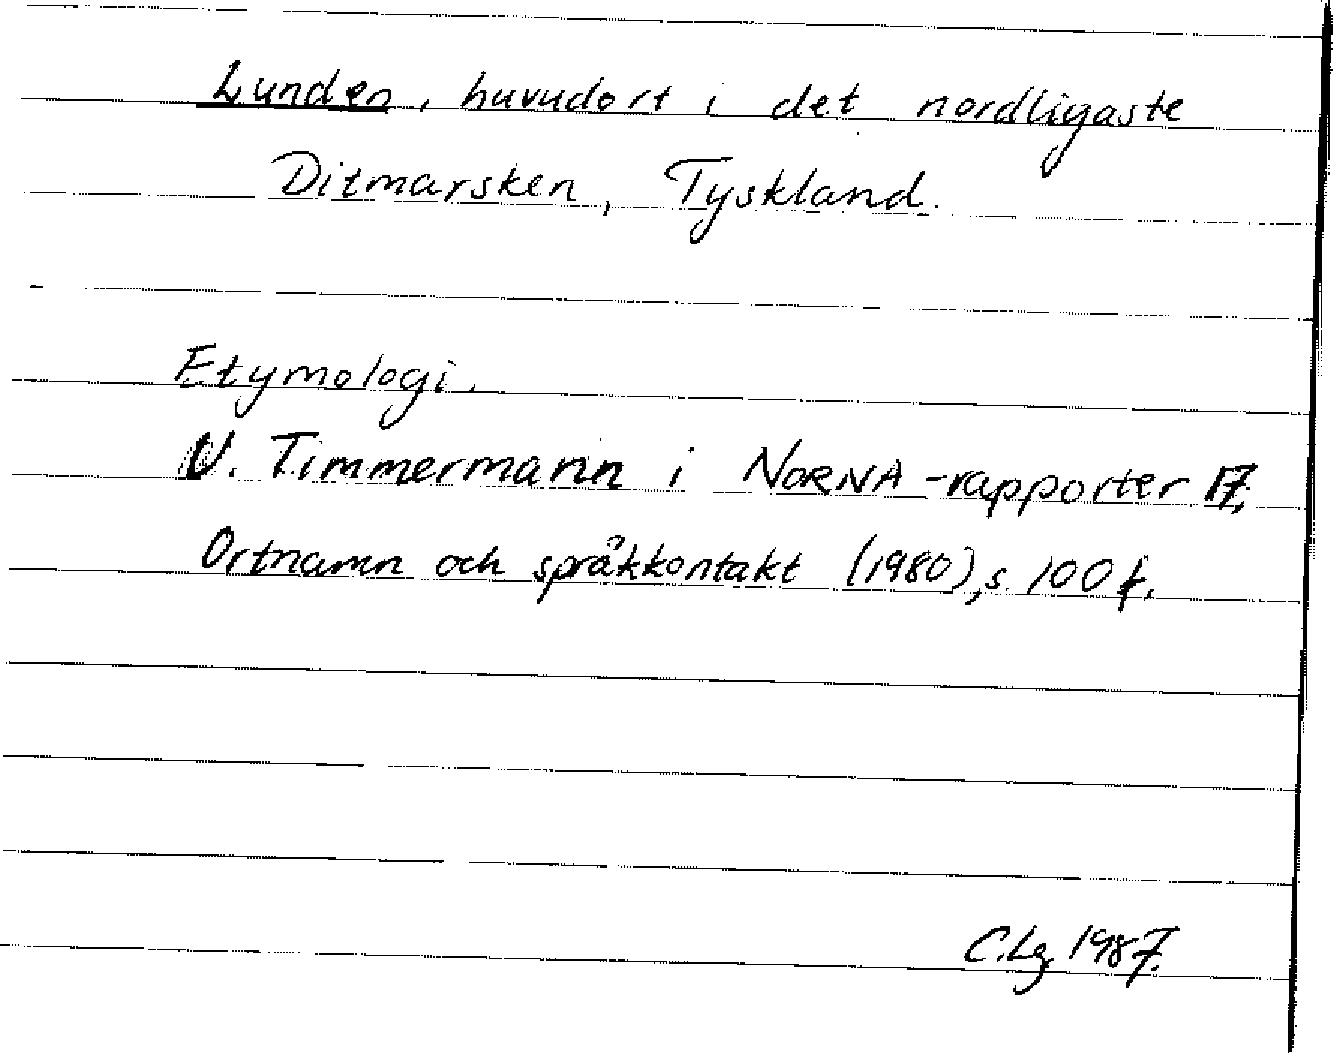 Lunden, huvudort i det nordligaste
Ditmarsken, Tyskland.
Etymologi.
U. Timmermann i NORNA-rapporter 17.
Ortnamn och språkkontakt (1980), s. 100 f.
C.Lg. 1987.